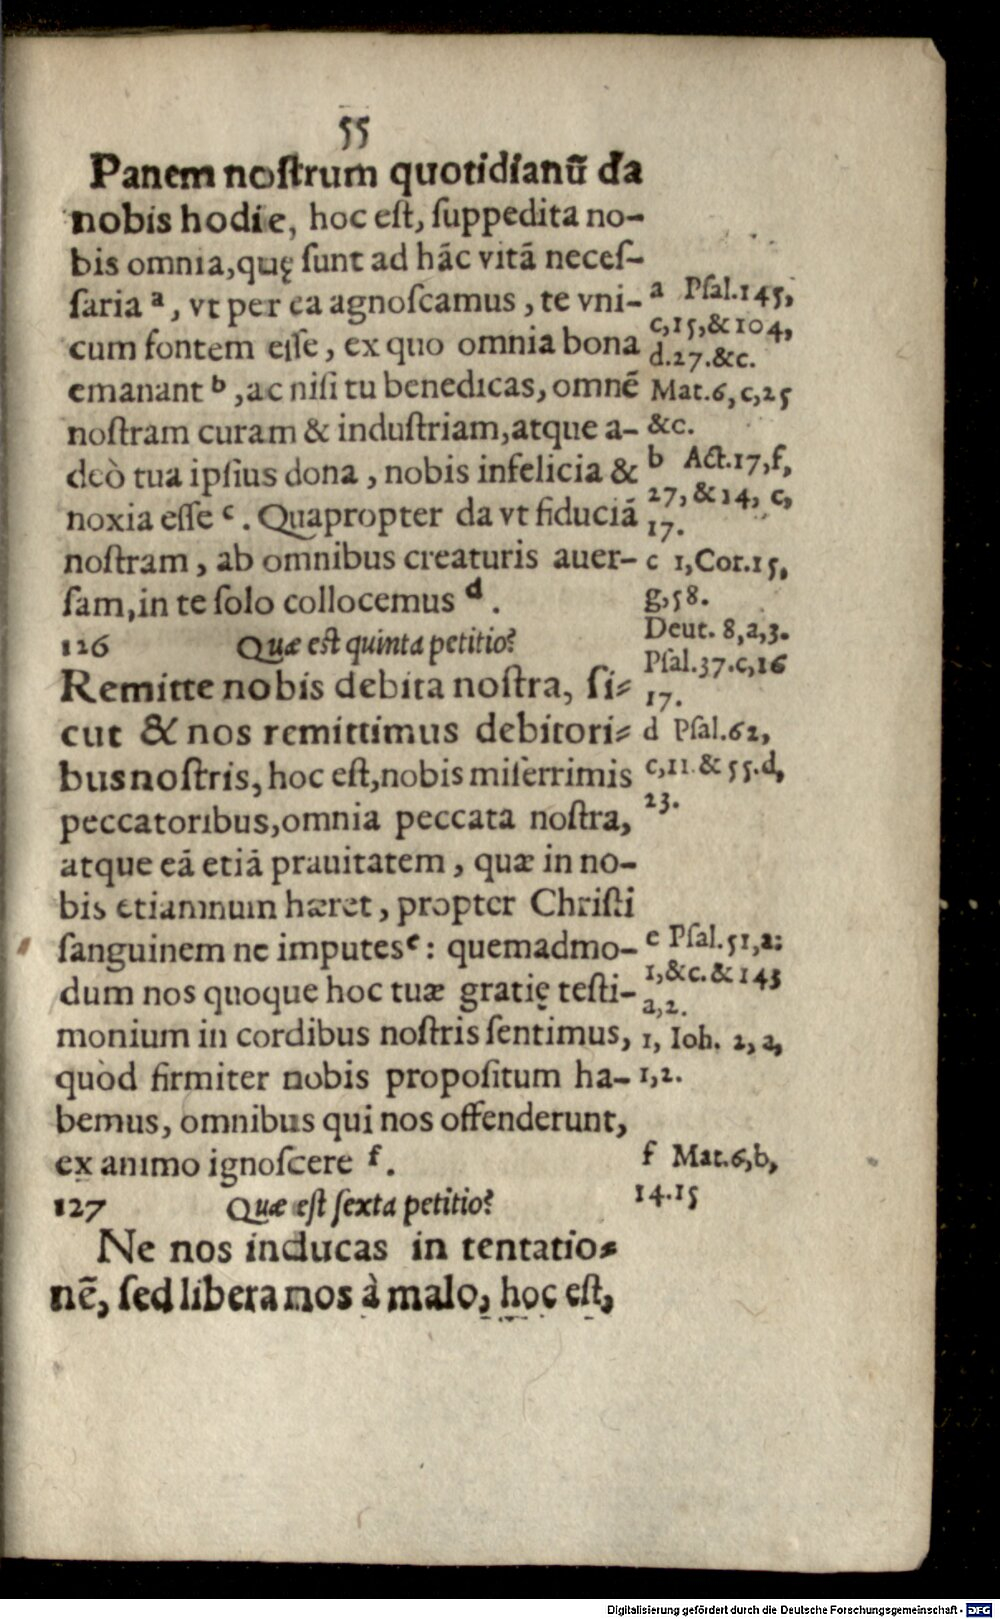 55
Panem nostrum quotidianũ da
nobis hodie, hoc est, suppedita no-
bis omnia, quę sunt ad hãc vitã neces-
saria a, vt per ea agnoscamus, te vni-
cum fontem esse, ex quo omnia bona
emanant b, ac nisi tu benedicas, omnẽ
nostram curam & industriam, atque a-
deò tua ipsius dona, nobis infelicia &
noxia esse c. Quapropter da vt fiduciã
nostram, ab omnibus creaturis auer-
sam, in te solo collocemus d.
a Psal.145,
c,15,&104,
d.27.&c.
Mat.6,c,25
&c.
b Act.17,f,
27,&14, c,
17.
c 1,Cor.15,
g,58.
Deut. 8,a,3.
Psal.37.c,16
17.
d Psal.62,
c,11 & 55.d,
23.
126 Quæ est quinta petitio?
Remitte nobis debita nostra, si-
cut & nos remittimus debitori-
bus nostris, hoc est, nobis miserrimis
peccatoribus, omnia peccata nostra,
atque eã etiã prauitatem, quæ in no-
bis etiamnum hæret, propter Christi
sanguinem ne imputes e: quemadmo-
dum nos quoque hoc tuæ gratię testi-
monium in cordibus nostris sentimus,
quòd firmiter nobis propositum ha-
bemus, omnibus qui nos offenderunt,
ex animo ignoscere f.
e Psal.51,a:
1,&c.& 143
a,2.
1, Ioh. 2, a,
1,2.
f Mat.6,b,
14.15
127 Quæ est sexta petitio?
Ne nos inducas in tentatio-
nẽ, sed libera nos à malo, hoc est,
Digitalisierung gefördert durch die Deutsche Forschungsgemeinschaft - DFG